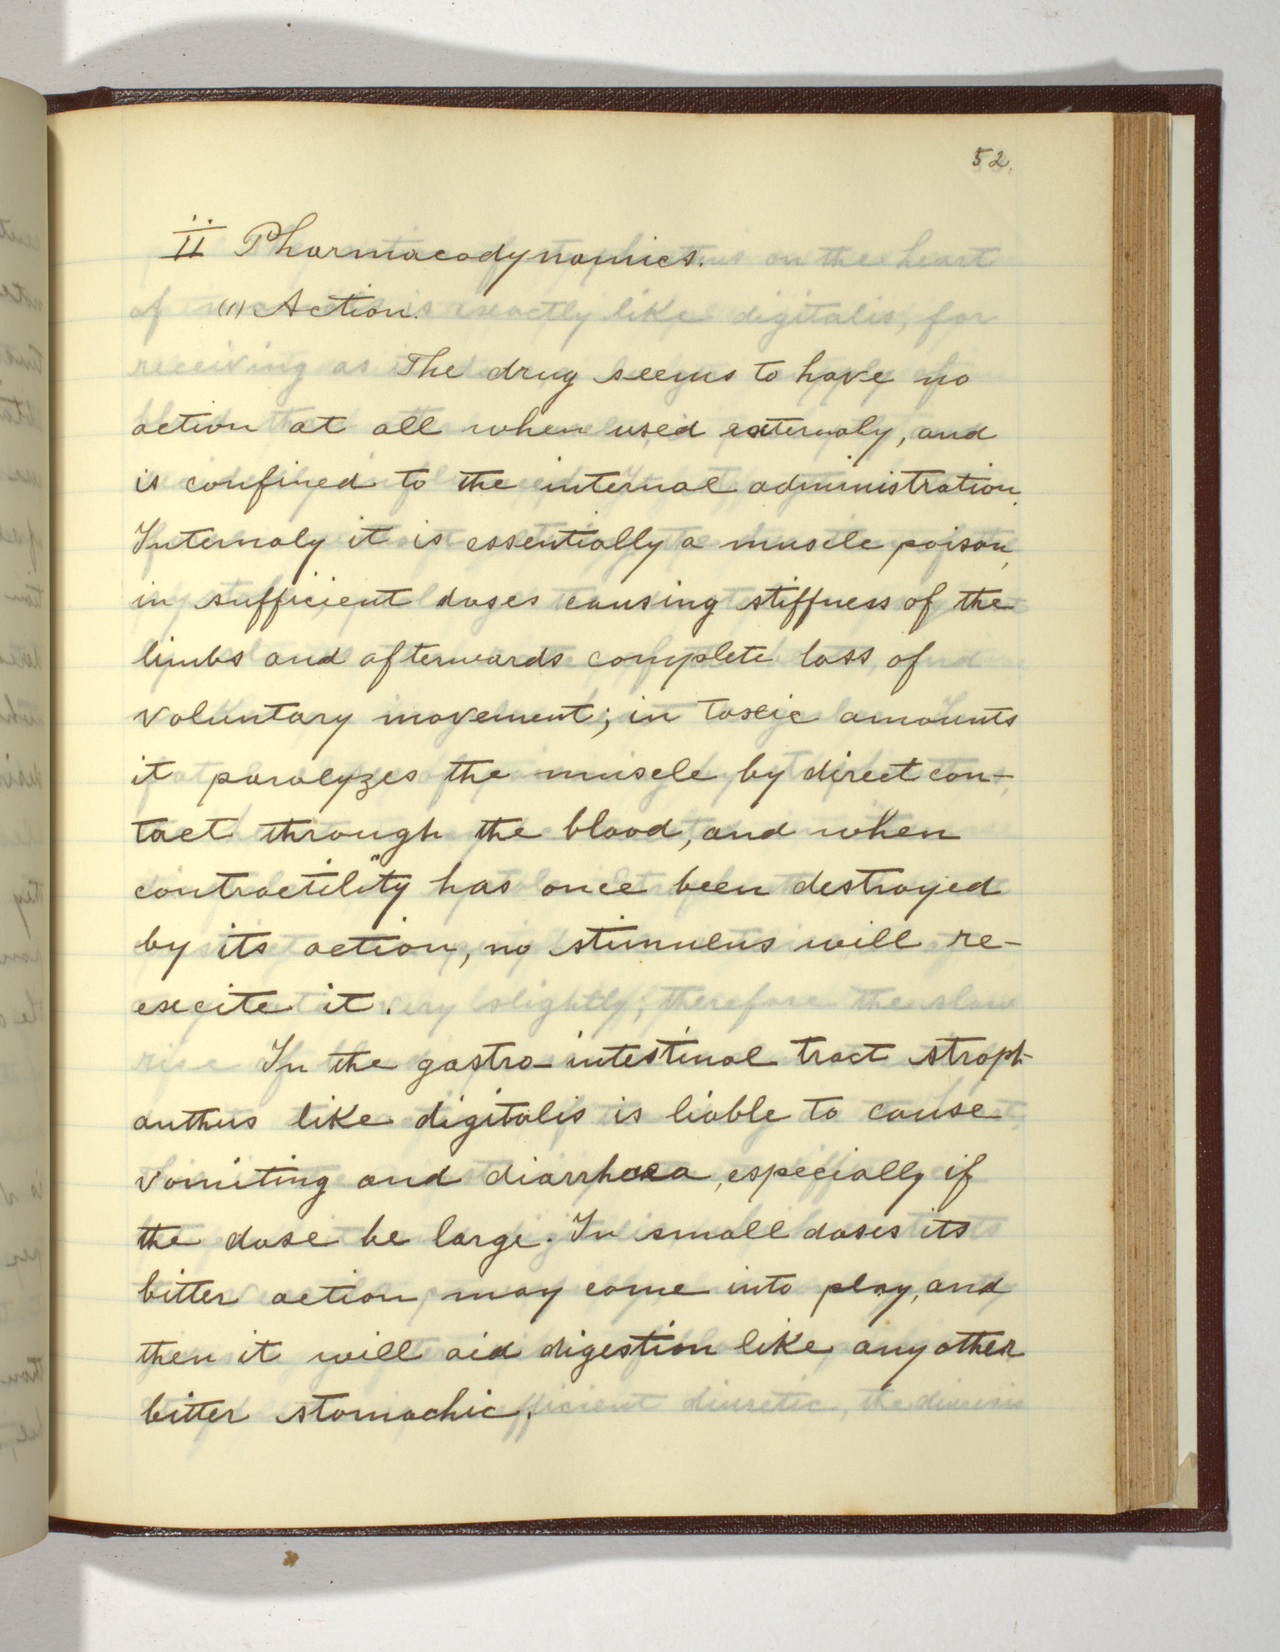 52.
ii Pharmacodynamics.
(1) Action.
The drug seems to have no
action at all when used externaly, and
is confined to the internal administration.
Internaly it is essentially a muscle poison,
in sufficient doses causing stiffness of the
limbs and afterwards complete loss of
voluntary movement; in toxic amounts
it paralyzes the muscle by direct con-
tact through the blood, and when
contractility has once been destroyed
by its action, no stimulus will re-
excite it.
In the gastro-intestinal tract stroph-
anthus like digitalis is liable to cause
vomiting and diarrhoea, especially if
the dose be large. In small doses its
bitter action may come into play, and
then it will aid digestion like any other
bitter stomachic.